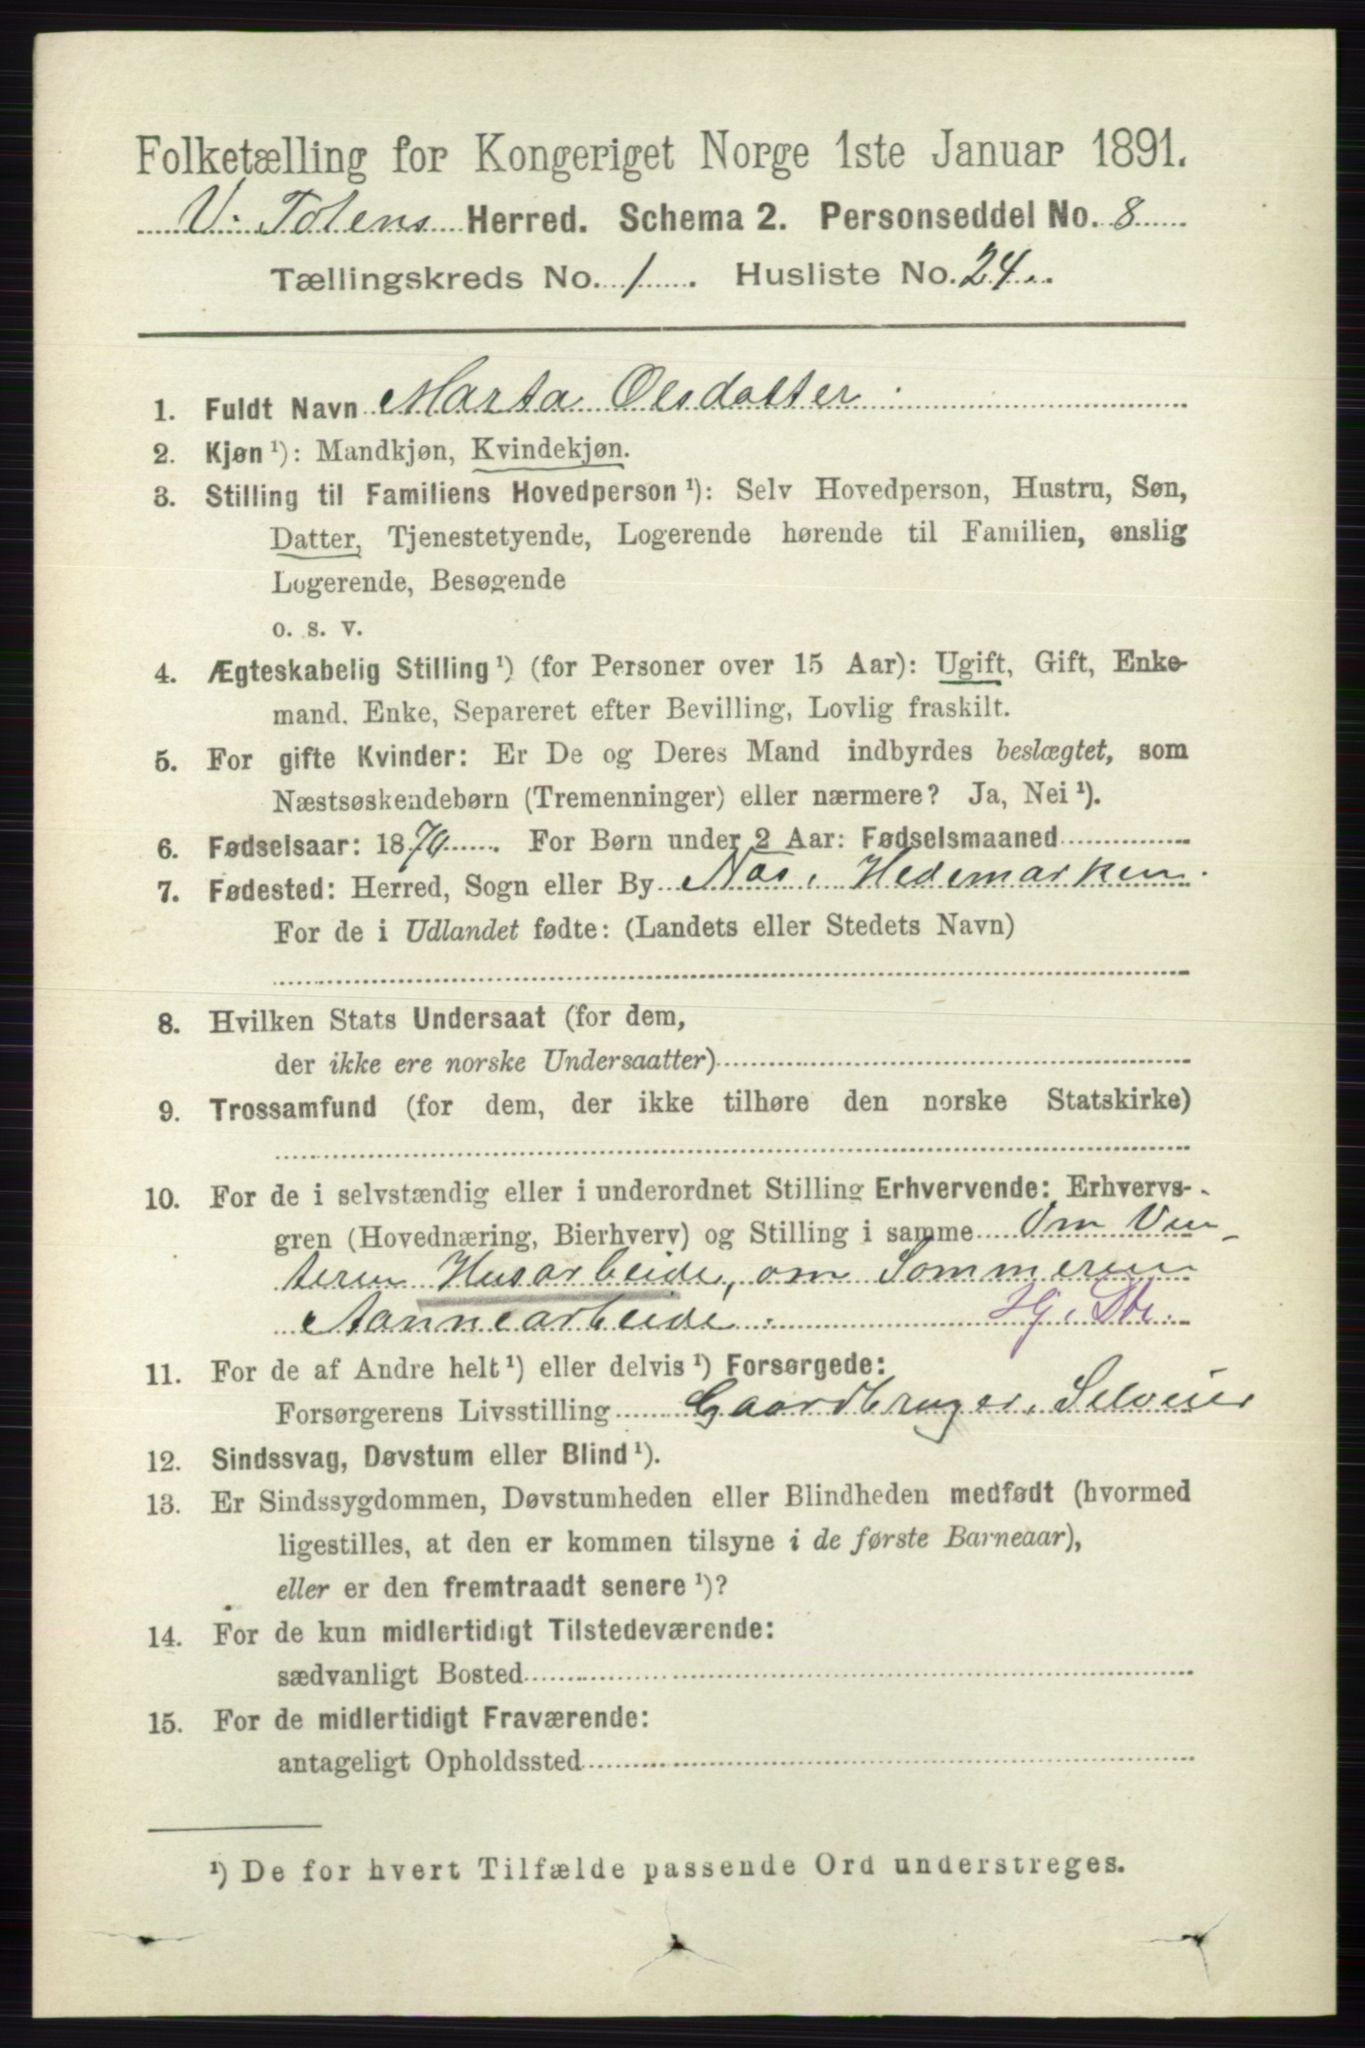 Folketælling for Kongeriget Norge 1ste Januar 1891.
V. Totens Herred. Schema 2. Personseddel No. 8
Tællingskreds No. 1. Husliste No. 24.
1. Fuldt Navn Marta Olsdatter
2. Kjøn ¹): Mandkjøn, Kvindekjøn.
3. Stilling til Familiens Hovedperson ¹): Selv Hovedperson, Hustru, Søn,
Datter, Tjenestetyende, Logerende hørende til Familien, enslig
Logerende, Besøgende
o. s. v.
4. Ægteskabelig Stilling ¹) (for Personer over 15 Aar): Ugift, Gift, Enke-
mand, Enke, Separeret efter Bevilling, Lovlig fraskilt.
5. For gifte Kvinder: Er De og Deres Mand indbyrdes beslægtet, som
Næstsøskendebørn (Tremenninger) eller nærmere? Ja, Nei ¹).
6. Fødselsaar: 1870. For Børn under 2 Aar: Fødselsmaaned
7. Fødested: Herred, Sogn eller By Næs, Hedemarken.
For de i Udlandet fødte: (Landets eller Stedets Navn)
8. Hvilken Stats Undersaat (for dem,
der ikke ere norske Undersaatter)
9. Trossamfund (for dem, der ikke tilhøre den norske Statskirke)
10. For de i selvstændig eller i underordnet Stilling Erhvervende: Erhvervs-
gren (Hovednæring, Bierhverv) og Stilling i samme Om Vin-
teren Husarbeide, om Sommeren
Aannearbeide.
11. For de af Andre helt ¹) eller delvis ¹) Forsørgede:
Forsørgerens Livsstilling Gaardbruger, Selveier
12. Sindssvag, Døvstum eller Blind ¹).
13. Er Sindssygdommen, Døvstumheden eller Blindheden medfødt (hvormed
ligestilles, at den er kommen tilsyne i de første Barneaar),
eller er den fremtraadt senere ¹)?
14. For de kun midlertidigt Tilstedeværende:
sædvanligt Bosted
15. For de midlertidigt Fraværende:
antageligt Opholdssted
¹) De for hvert Tilfælde passende Ord understreges.